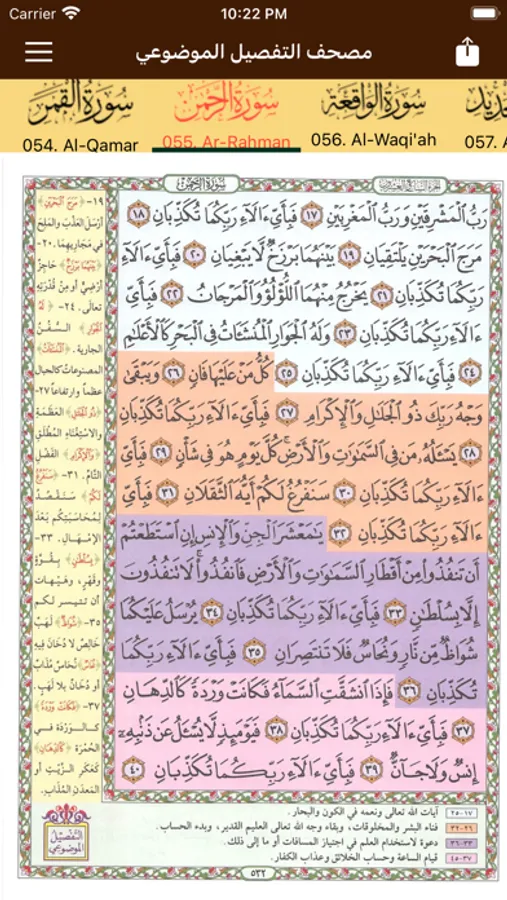 Carrier 10:22 PM
مصحف التفصيل الموضوعي
سورة القمر سورة الرحمن سورة الواقعة
054. Al-Qamar 055. Ar-Rahman 056. Al-Waqi'ah 057. A
سورة الرحمن
رَبُّ ٱلْمَشْرِقَيْنِ وَرَبُّ ٱلْمَغْرِبَيْنِ ١٧ فَبِأَىِّ ءَالَآءِ رَبِّكُمَا تُكَذِّبَانِ ١٨
مَرَجَ ٱلْبَحْرَيْنِ يَلْتَقِيَانِ ١٩ بَيْنَهُمَا بَرْزَخٌ لَّا يَبْغِيَانِ ٢٠ فَبِأَىِّ ءَالَآءِ
رَبِّكُمَا تُكَذِّبَانِ ٢١ يَخْرُجُ مِنْهُمَا ٱللُّؤْلُؤُ وَٱلْمَرْجَانُ ٢٢ فَبِأَىِّ
ءَالَآءِ رَبِّكُمَا تُكَذِّبَانِ ٢٣ وَلَهُ ٱلْجَوَارِ ٱلْمُنشَـَٔاتُ فِى ٱلْبَحْرِ كَٱلْأَعْلَٰمِ
٢٤ فَبِأَىِّ ءَالَآءِ رَبِّكُمَا تُكَذِّبَانِ ٢٥ كُلُّ مَنْ عَلَيْهَا فَانٍ ٢٦ وَيَبْقَىٰ
وَجْهُ رَبِّكَ ذُو ٱلْجَلَٰلِ وَٱلْإِكْرَامِ ٢٧ فَبِأَىِّ ءَالَآءِ رَبِّكُمَا تُكَذِّبَانِ
٢٨ يَسْـَٔلُهُۥ مَن فِى ٱلسَّمَٰوَٰتِ وَٱلْأَرْضِ ۚ كُلَّ يَوْمٍ هُوَ فِى شَأْنٍ ٢٩ فَبِأَىِّ
ءَالَآءِ رَبِّكُمَا تُكَذِّبَانِ ٣٠ سَنَفْرُغُ لَكُمْ أَيُّهَ ٱلثَّقَلَانِ ٣١ فَبِأَىِّ
ءَالَآءِ رَبِّكُمَا تُكَذِّبَانِ ٣٢ يَٰمَعْشَرَ ٱلْجِنِّ وَٱلْإِنسِ إِنِ ٱسْتَطَعْتُمْ
أَن تَنفُذُوا۟ مِنْ أَقْطَارِ ٱلسَّمَٰوَٰتِ وَٱلْأَرْضِ فَٱنفُذُوا۟ ۚ لَا تَنفُذُونَ
إِلَّا بِسُلْطَٰنٍ ٣٣ فَبِأَىِّ ءَالَآءِ رَبِّكُمَا تُكَذِّبَانِ ٣٤ يُرْسَلُ عَلَيْكُمَا
شُوَاظٌ مِّن نَّارٍ وَنُحَاسٌ فَلَا تَنتَصِرَانِ ٣٥ فَبِأَىِّ ءَالَآءِ رَبِّكُمَا
تُكَذِّبَانِ ٣٦ فَإِذَا ٱنشَقَّتِ ٱلسَّمَآءُ فَكَانَتْ وَرْدَةً كَٱلدِّهَانِ
٣٧ فَبِأَىِّ ءَالَآءِ رَبِّكُمَا تُكَذِّبَانِ ٣٨ فَيَوْمَئِذٍ لَّا يُسْـَٔلُ عَن ذَنۢبِهِۦٓ
إِنسٌ وَلَا جَآنٌّ ٣٩ فَبِأَىِّ ءَالَآءِ رَبِّكُمَا تُكَذِّبَانِ ٤٠
١٩- ﴿مرج البحرين﴾
أرسل العذب والملح
في مجاريهما. ٢٠-
﴿بينهما برزخ﴾ حاجز
أرضي أو من قدرته
تعالى. ٢٤- ﴿له
الجوار﴾ السفن
الجارية. ﴿المنشآت﴾
المصنوعات كالجبال
عظماً وارتفاعاً ٢٧-
﴿ذو الجلال﴾ العظمة
والاستغناء المطلق
﴿والإكرام﴾ الفضل
التام. ٣١- ﴿سنفرغ
لكم﴾ سنقصد
لمحاسبتكم بعد
الإمهال. ٣٣-
﴿بسلطان﴾ بقوة
وقهر، وهيهات
أن تتيسر لكم
٣٥- ﴿شواظ﴾ لهب
خالص لا دخان فيه
﴿نحاس﴾ نحاس مذاب
أو دخان بلا لهب.
٣٧- ﴿فكانت وردة﴾
كالوردة في
الحمرة ﴿كالدهان﴾
كعكر الزيت أو
المعدن المذاب.
التفصيل الموضوعي
١٧-٢٥ آيات الله تعالى ونعمه في الكون والبحار.
٢٦-٣٢ فناء البشر والمخلوقات، وبقاء وجه الله تعالى العليم القدير، وبدء الحساب.
٣٣-٣٦ دعوة لاستخدام العلم في اجتياز المسافات أو ما إلى ذلك.
٣٧-٤٥ قيام الساعة وحساب الخلائق وعذاب الكفار.
٥٣٢